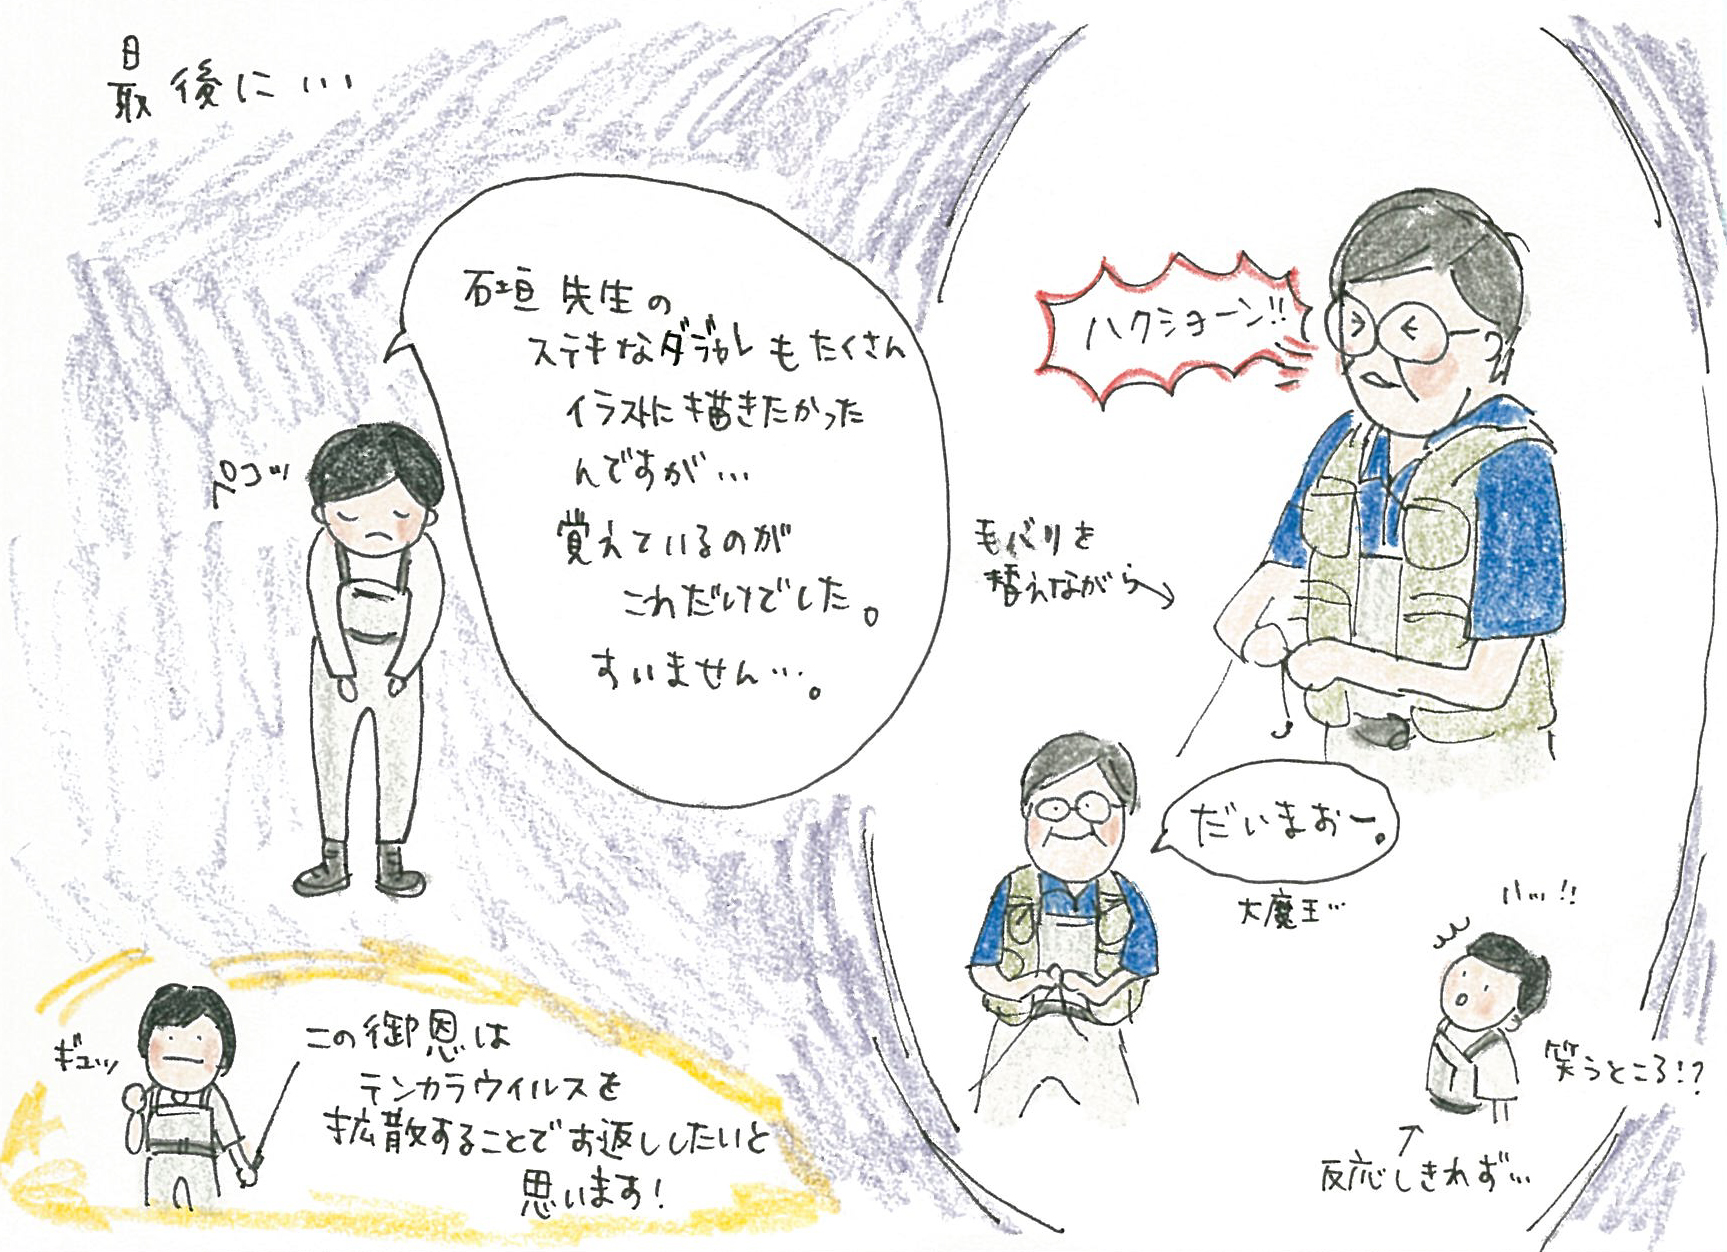 最後に…
石垣先生の
ステキなダジャレもたくさん
イラストに描きたかった
んですが…
覚えているのが
これだけでした。
すいません…。
ペコッ
ハクショーン!!
毛バリを
替えながら→
だいまおー。
大魔王…
ハッ!!
笑うところ!?
反応しきれず…
ギュッ
この御恩は
テンカラウイルスを
拡散することでお返ししたいと
思います!